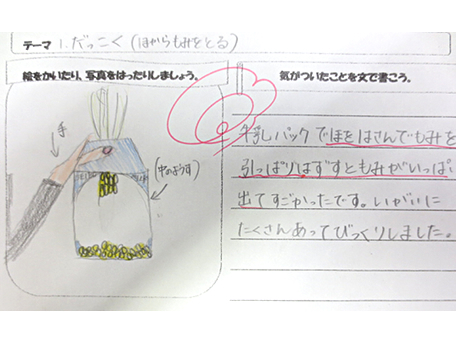 テーマ 1.だっこく(ほからもみをとる)
絵をかいたり、写真をはったりしましょう。
手
(中のようす)
気がついたことを文で書こう。
牛乳パックでほをはさんでもみを
引っぱりはずすともみがいっぱい
出てすごかったです。いがいに
たくさんあってびっくりしました。